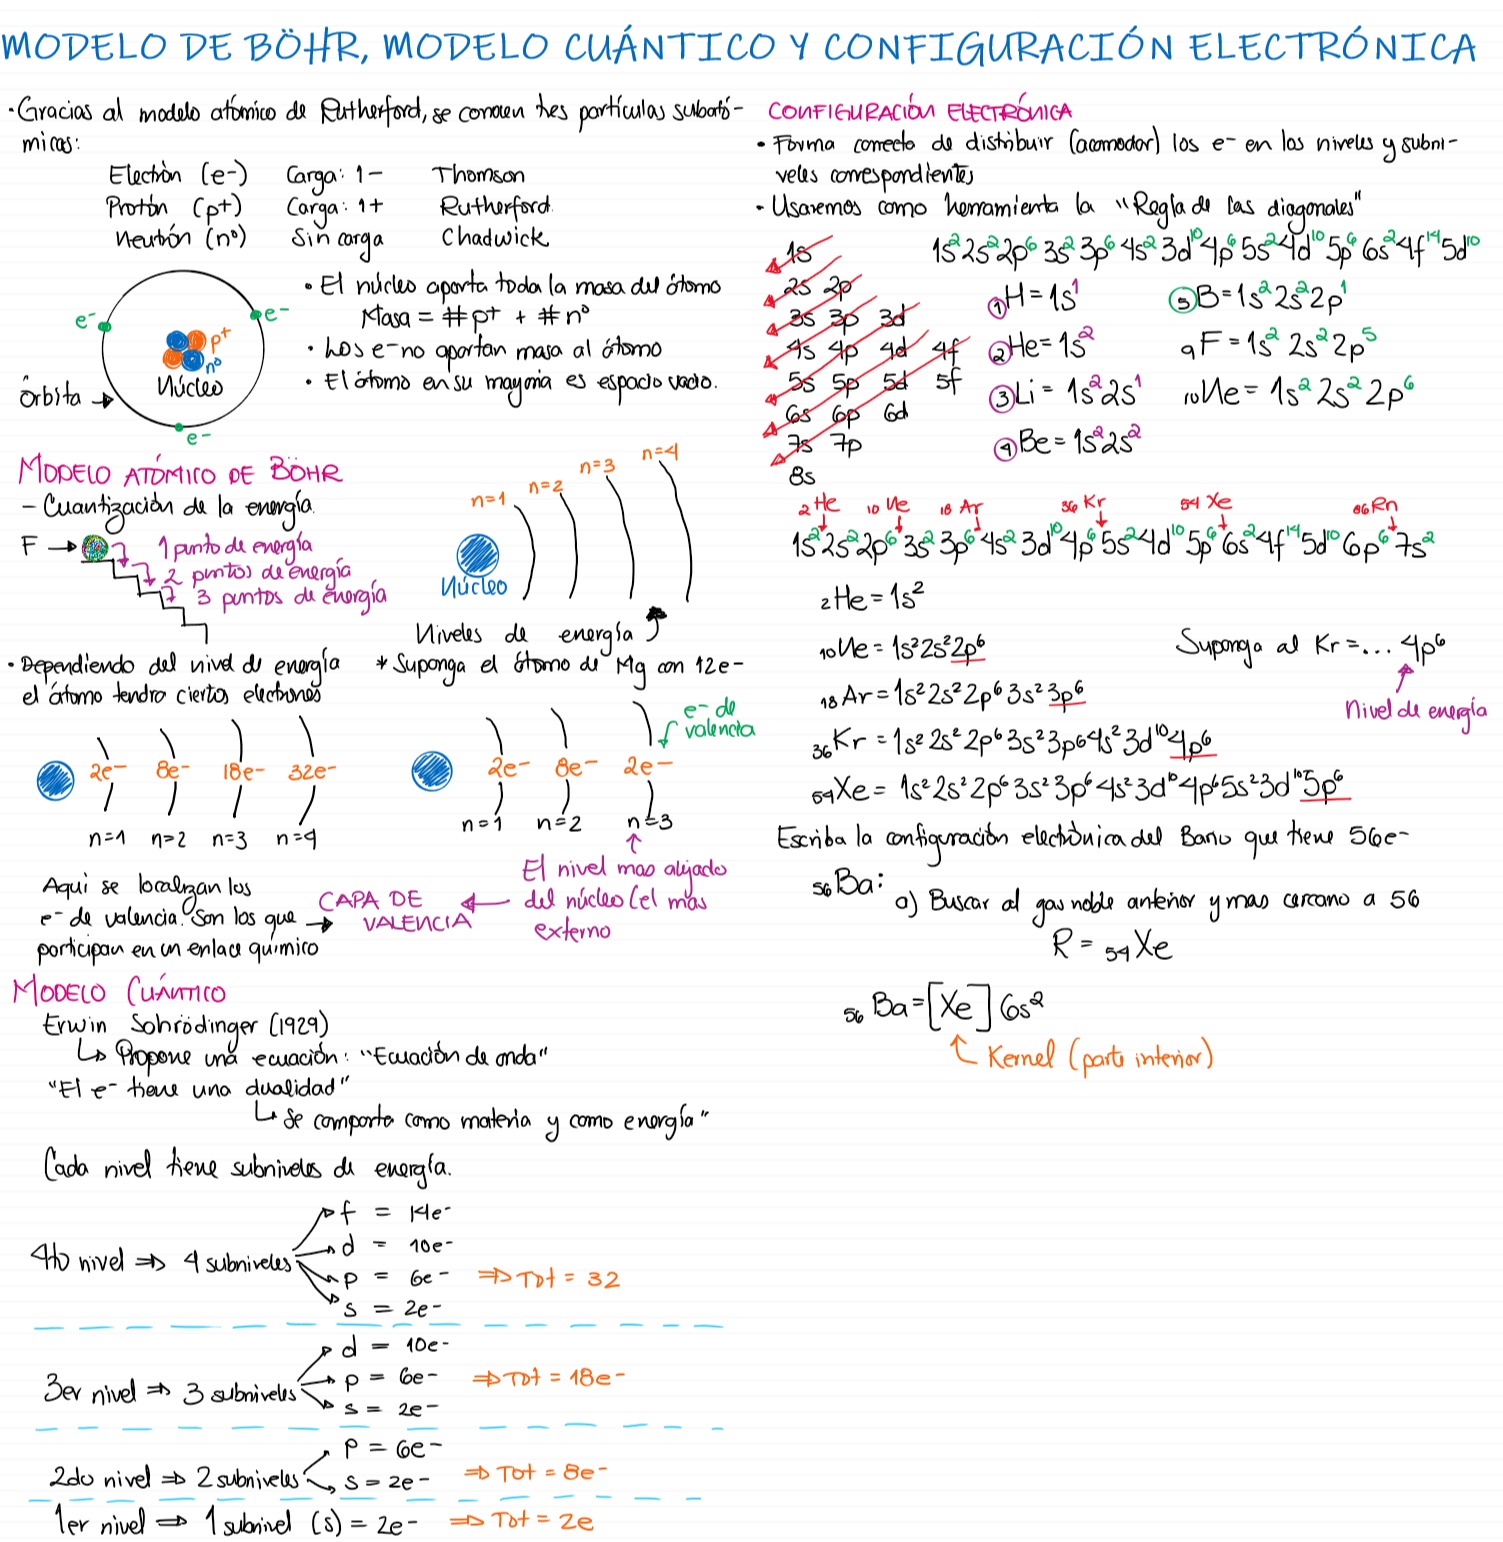 MODELO DE BÖHR, MODELO CUÁNTICO Y CONFIGURACIÓN ELECTRÓNICA
·Gracias al modelo atómico de Rutherford, se conocen tres partículas subató-
micas:
Electrón (e-) Carga: 1- Thomson
Protón (p+) Carga: 1+ Rutherford
Neutrón (n°) Sin carga Chadwick
• El núcleo aporta toda la masa del átomo
Masa = #p+ + #n°
• Los e- no aportan masa al átomo
• El átomo en su mayoría es espacio vacío.
e- e-
p+
n°
Núcleo
Órbita
e-
MODELO ATÓMICO DE BÖHR
- Cuantización de la energía.
F
1 punto de energía
2 puntos de energía
3 puntos de energía
n=1 n=2 n=3 n=4
Núcleo
Niveles de energía
• Dependiendo del nivel de energía
el átomo tendrá ciertos electrones
2e- 8e- 18e- 32e-
n=1 n=2 n=3 n=4
* Suponga el átomo de Mg con 12e-
e- de
valencia
2e- 8e- 2e-
n=1 n=2 n=3
El nivel mas alejado
del núcleo (el más
externo
CAPA DE
VALENCIA
Aquí se localizan los
e- de valencia. Son los que
participan en un enlace químico
MODELO CUÁNTICO
Erwin Sohrödinger (1929)
↳ Propone una ecuación: "Ecuación de onda"
"El e- tiene una dualidad"
↳ Se comporta como materia y como energía"
Cada nivel tiene subniveles de energía.
f = 14e-
d = 10e-
4to nivel ⇒ 4 subniveles
p = 6e- ⇒ Tot = 32
s = 2e-
d = 10e-
3er nivel ⇒ 3 subniveles p = 6e- ⇒ Tot = 18e-
s = 2e-
p = 6e-
2do nivel ⇒ 2 subniveles s = 2e- ⇒ Tot = 8e-
1er nivel ⇒ 1 subnivel (s) = 2e- ⇒ Tot = 2e
CONFIGURACIÓN ELECTRÓNICA
• Forma correcta de distribuir (acomodar) los e- en los niveles y subni-
veles correspondientes
• Usaremos como herramienta la "Regla de las diagonales"
1s
2s 2p
3s 3p 3d
4s 4p 4d 4f
5s 5p 5d 5f
6s 6p 6d
7s 7p
8s
1s² 2s² 2p⁶ 3s² 3p⁶ 4s² 3d¹⁰ 4p⁶ 5s² 4d¹⁰ 5p⁶ 6s² 4f¹⁴ 5d¹⁰
①H = 1s¹ ⑤B = 1s² 2s² 2p¹
②He = 1s² ₉F = 1s² 2s² 2p⁵
③Li = 1s² 2s¹ ₁₀Ne = 1s² 2s² 2p⁶
④Be = 1s² 2s²
₂He ₁₀Ne ₁₈Ar ₃₆Kr ₅₄Xe ₈₆Rn
1s² 2s² 2p⁶ 3s² 3p⁶ 4s² 3d¹⁰ 4p⁶ 5s² 4d¹⁰ 5p⁶ 6s² 4f¹⁴ 5d¹⁰ 6p⁶ 7s²
₂He = 1s²
₁₀Ne = 1s² 2s² 2p⁶
₁₈Ar = 1s² 2s² 2p⁶ 3s² 3p⁶
₃₆Kr = 1s² 2s² 2p⁶ 3s² 3p⁶ 4s² 3d¹⁰ 4p⁶
₅₄Xe = 1s² 2s² 2p⁶ 3s² 3p⁶ 4s² 3d¹⁰ 4p⁶ 5s² 3d¹⁰ 5p⁶
Suponga al Kr = ... 4p⁶
Nivel de energía
Escriba la configuración electrónica del Bario que tiene 56e-
₅₆Ba:
a) Buscar al gas noble anterior y mas cercano a 56
R = ₅₄Xe
₅₆Ba = [Xe] 6s²
Kernel (parte interior)